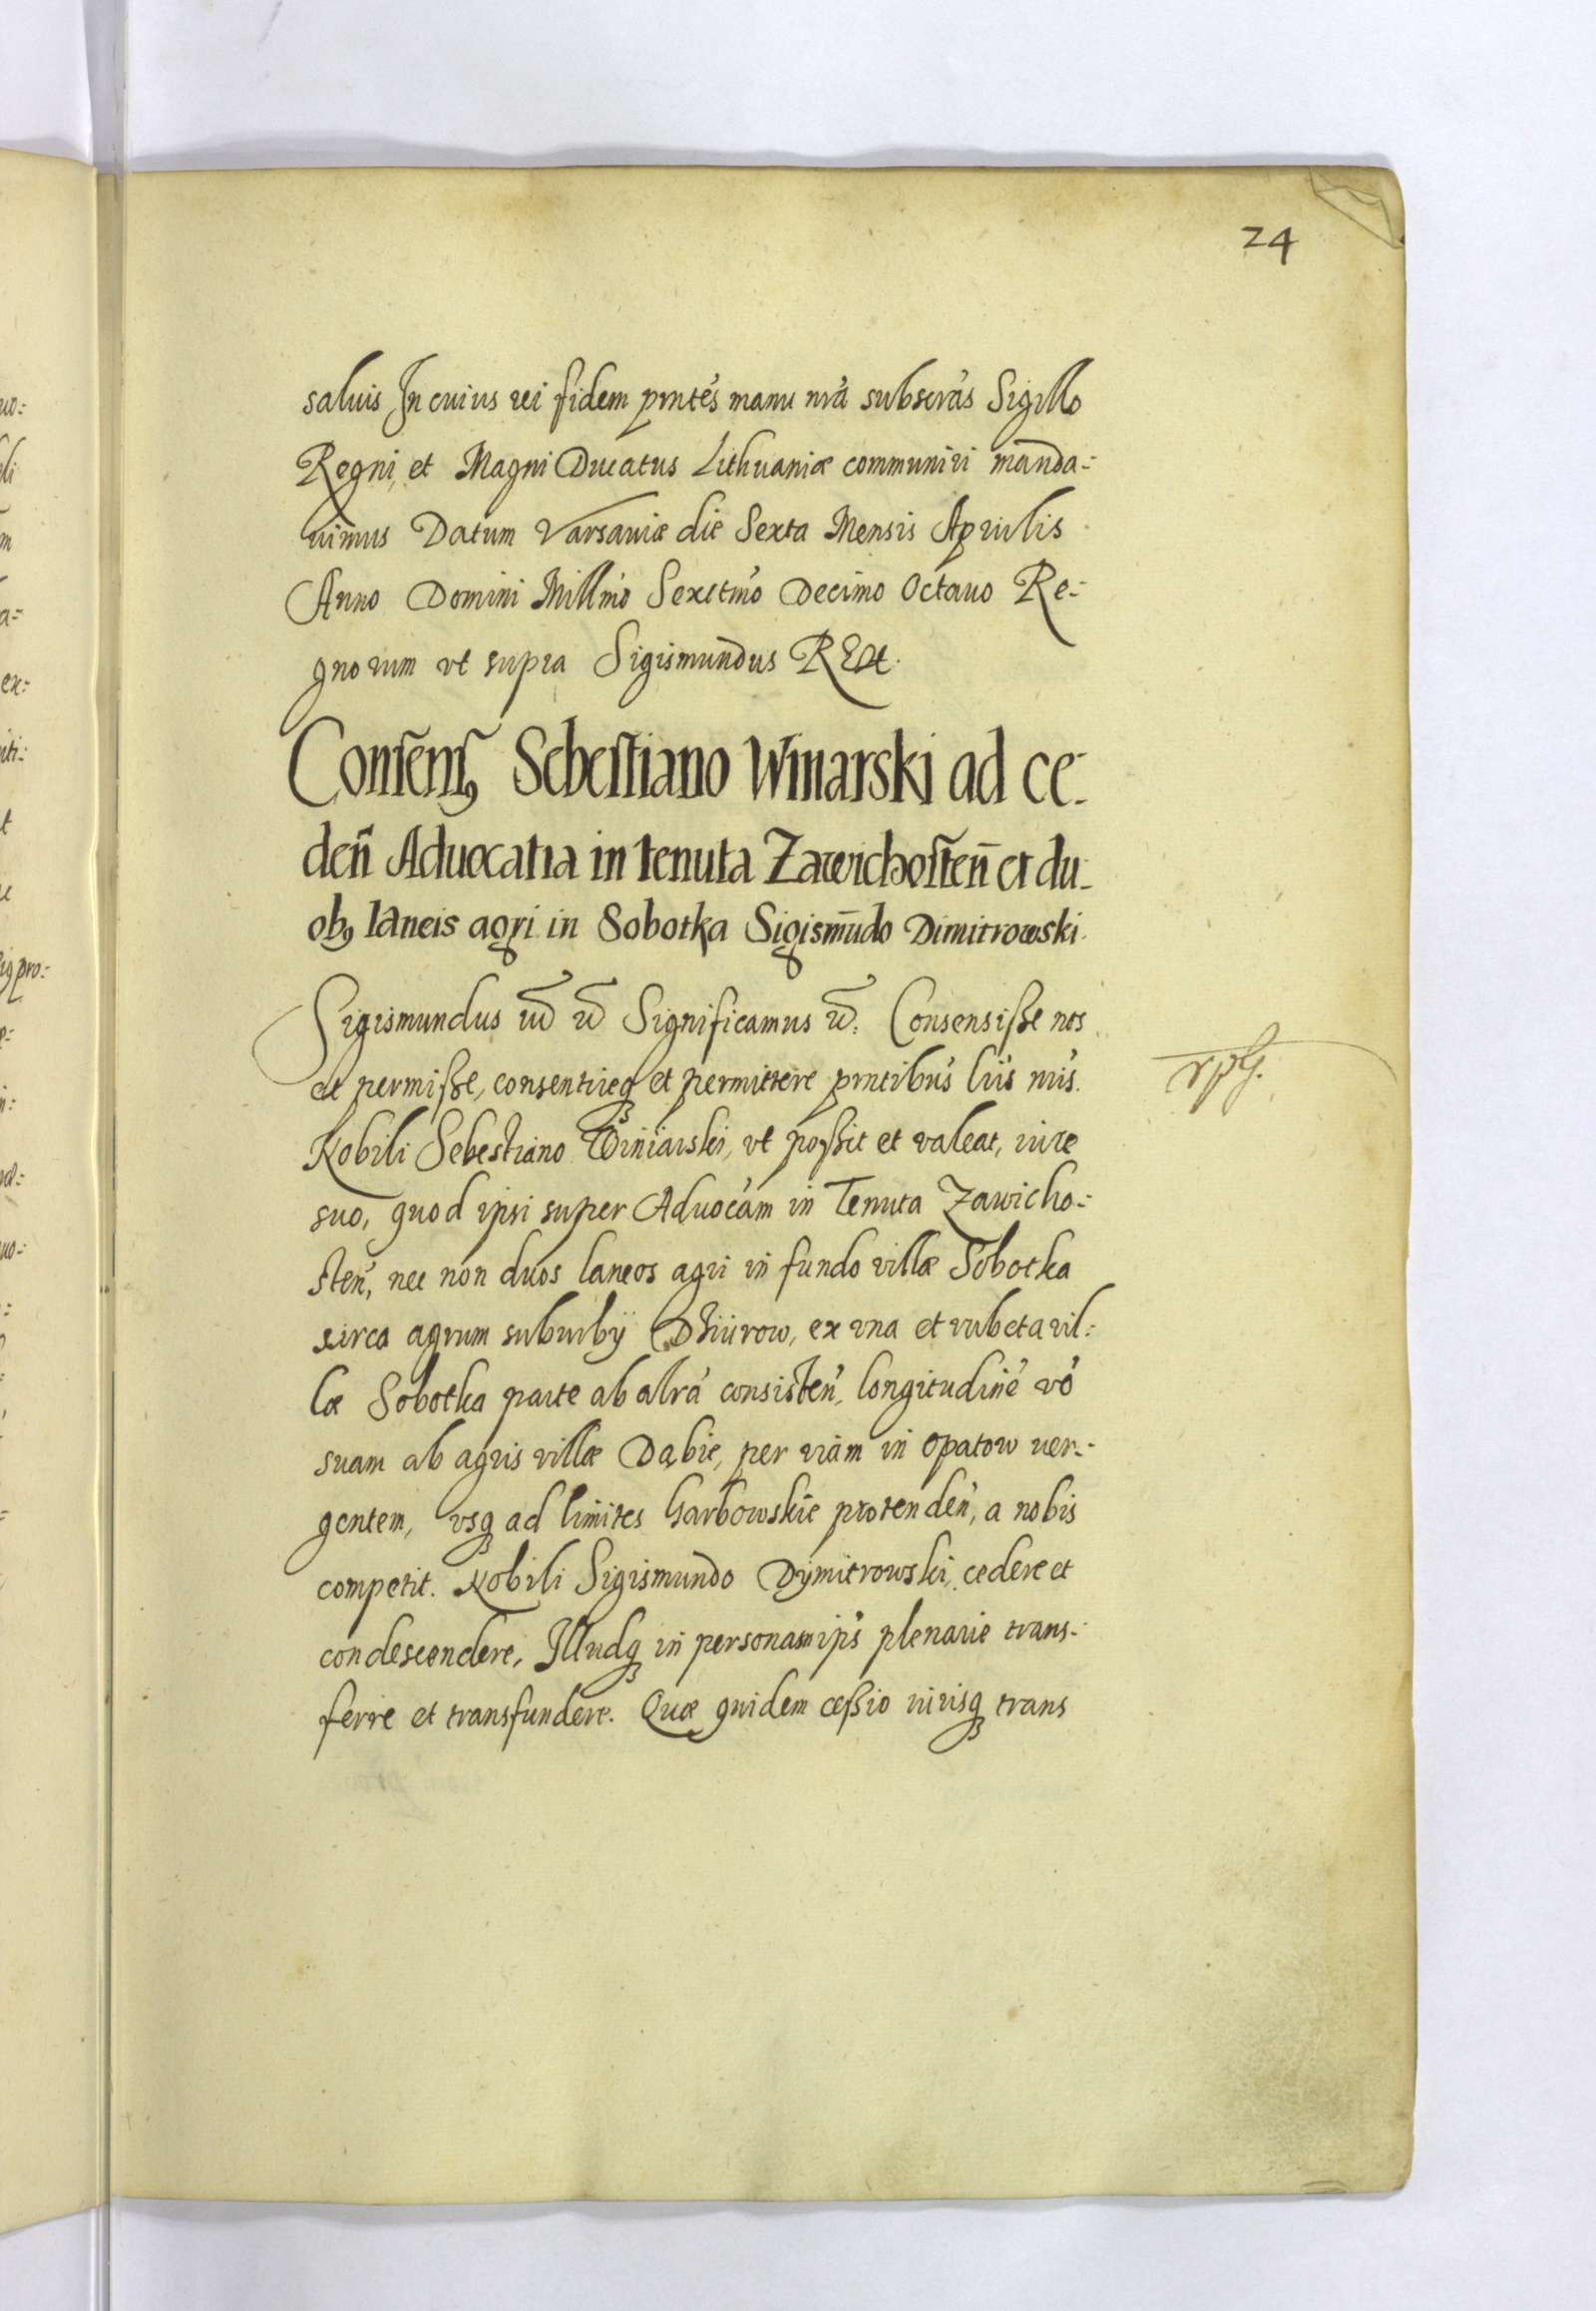 24
saluis In cuius rei fidem pnte's manu nra' subscra's Sigillo
Regni, et Magni Ducatus Lithuaniæ communiri manda-
uimus Datum Varsauiæ die Sexta Mensis Aprilis
Anno Domini Millm'o Sexctm'o Decimo Octauo Re-
gnorum vt supra Sigismundus REX.
Consens9 Sebestiano Winarski ad ce-
den̄ Aduocatia in tenuta Zawichosten̄ et du-
ob9 laneis agri in Sobotka Sigismūdo Dimitrowski.
Sigismundus Significamus Consensiße nos
et permiße, consentireq3 et permittere pntibu's lii's nri's.
Nobili Sebestiano Winiarski, vt poßit et valeat, iure
suo, quod ipsi super Aduoca'm in Tenuta Zawicho-
sten', nec non duos laneos agri in fundo villæ Sobotka
circa agrum suburbÿ ex vna et rubeta vil-
læ Sobotka parte ab alra' consisten', longitudine' vo'
suam ab agris villæ Dąbie, per viam in Opatow ver-
gentem, vsq3 ad limites Garbowskie protenden', a nobis
competit. Nobili Sigismundo Dÿmitrowski, cedere et
condescendere, Illudq3 in personam ips' plenarie trans-
ferre et transfundere. Quæ quidem ceßio iurisq3 trans